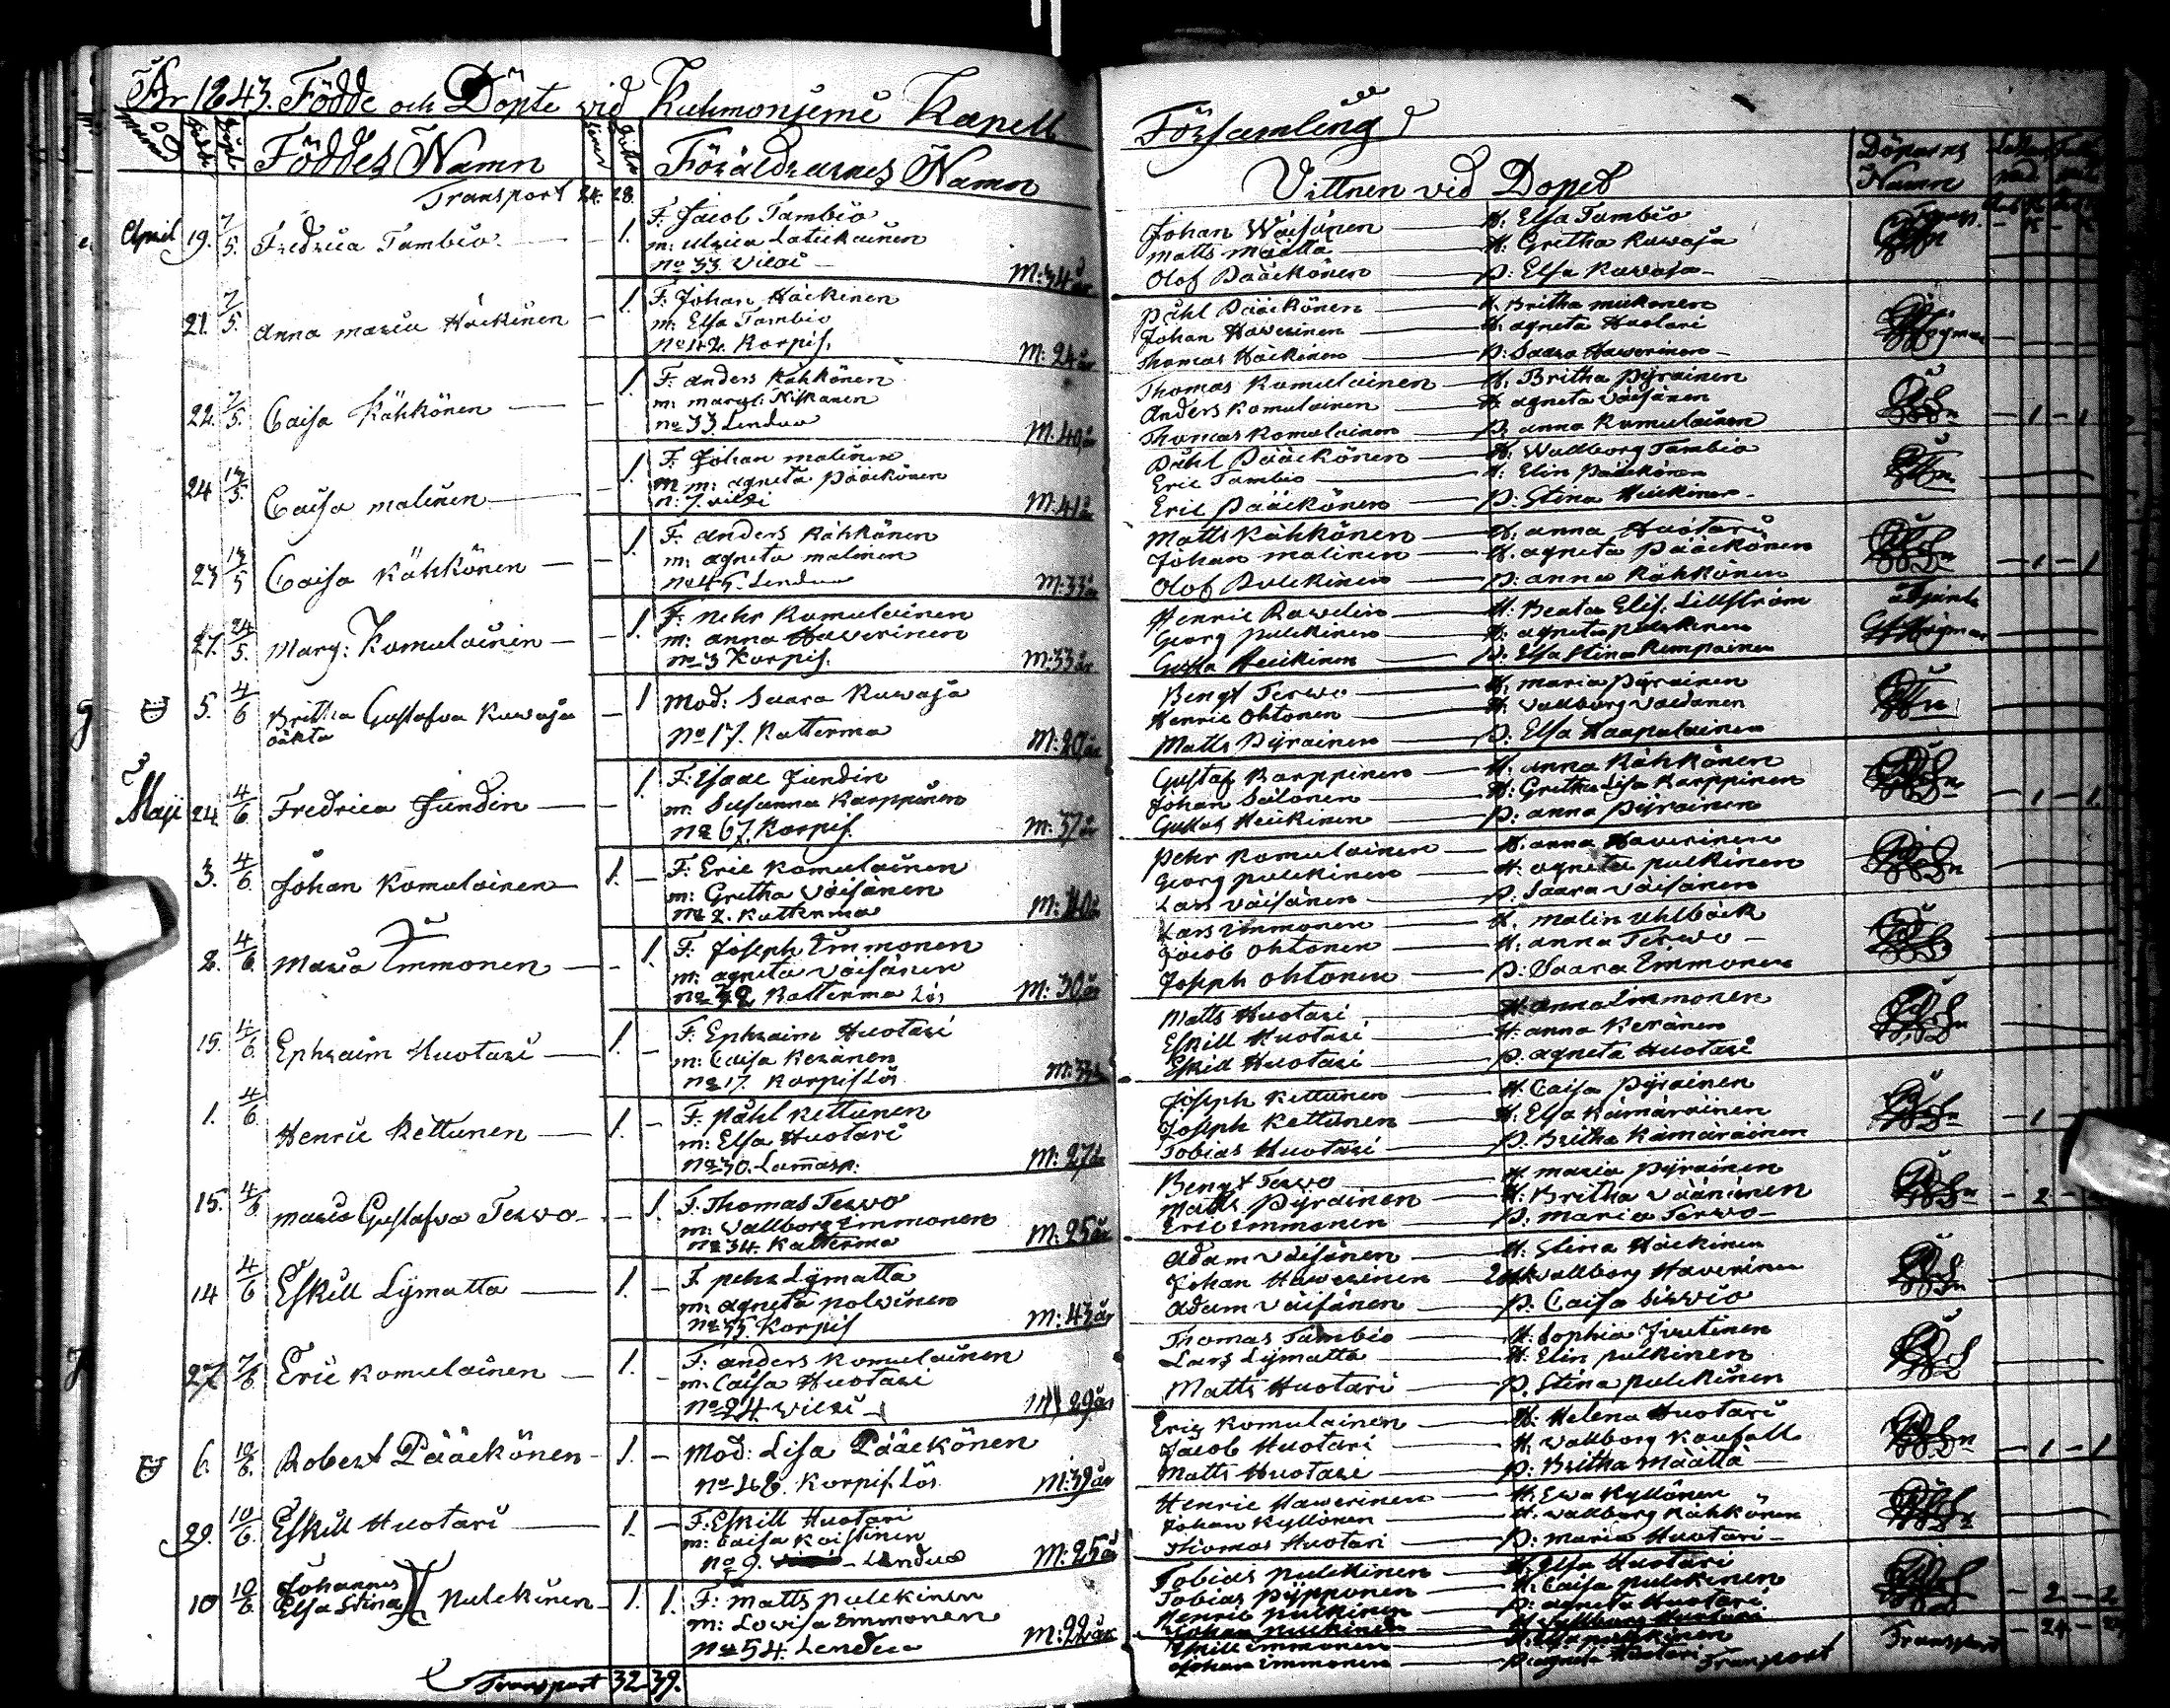 År 1843. Födde och Döpte vid Kuhmoniemi Kapell
Församling
Föddes Namn
Föräldrarnes Namn
Vittnen vid Dopet
Döparns Namn
Transport 24. 28.
April 19. 7/5. Fredrica Tambio — 1.
F. Jacob Tambio
m: Ulrica Latukainen
No 33 Vieri — M: 34 år
Johan Wäisänen — H. Elsa Tambio
Matts Määttä — H. Gretha Kuwaja
Olof Pääckönen — P: Elsa Kuwaja
21. 7/5. Anna Maria Häckinen — 1.
F: Johan Häckinen
m: Elsa Tambio
Korpis. M: 24 år
Påhl Pääckönen — H. Britha Mickonen
Johan Hawerinen — H. Agneta Huotari
Thomas Häckinen — P: Saara Hawerinen
22. 7/5. Caisa Kähkönen — 1.
F: Anders Kähkönen
m: Margt. Niskanen
No 33 Lendua M. 40 år
Thomas Komulainen — H. Britha Pyrainen
Anders Komulainen — H. Agneta Väisänen
Thomas Komulainen — P. Anna Komulainen
— 1 — 1
24 14/5. Caisa Malinen — 1.
F. Johan Malinen
m: Agneta Pääckönen
N: 7. M. 41 år
Påhl Pääckönen — H. Wallborg Tambio
Eric Tambio — H: Elin Pääckönen
Eric Pääckönen — P. Stina Heickinen
23 14/5 Caisa Kähkönen — 1.
F. Anders Kähkönen
m: Agneta Malinen
No 45. Lendua M: 33 år
Matts Kähkönen — H. Anna Huotari
Johan Malinen — H. Agneta Pääckönen
Olof Pulckinen — P: Anna Kähkönen
— 1 — 1
27. 24/5. Marg: Komulainen — 1.
F. Pehr Komulainen
m: Anna Hawerinen
No 3 Korpis. M: 33 år
Henric Rawelin — H. Beata Elis. Lillström
Georg Pulckinen — H: Agneta Pulckinen
Gusta Heickinen — P. Elsa Stina Kempainen
5. 4/6 Britha Gustafva Kuwaja — 1
oäkta
Mod: Saara Kuwaja
No 17. Katterma M: 20 år
Bengt Terwo — H. Maria Pyrainen
Henric Ohtonen — H. Wallborg
Matts Pyrainen — P: Elsa Haapalainen
Maji 24. 4/6. Fredrica Jundin — 1.
F: Isaac Jundin
m: Susanna Karppinen
No 67. Korpis. M: 37 år
Gustaf Karppinen — H. Anna Kähkönen
Johan Salonen — H: Gretha Lisa Karppinen
Gustaf Heickinen — P: Anna Pyrainen
— 1 — 1
3. 4/6. Johan Komulainen — 1. —
F: Eric Komulainen
m: Gretha Väisänen
No 2. Katterma M: 40 år
Pehr Komulainen — H. Anna Hawerinen
Georg Pulckinen — H. Agneta Pulckinen
Lars Väisänen — P. Saara Väisänen
8. 4/6. Maria Emmonen — 1.
F. Joseph Emmonen
m: Agneta Väisänen
Katterma Lös M: 30 år
Lars Immonen — H. Malin Uhlbäck
Jacob Ohtonen — H: Anna Terwo
Joseph Ohtonen — P: Saara Emmonen
15. 4/6. Ephraim Huotari — 1. —
F. Ephraim Huotari
m: Caisa Keränen
No 17. Korpis Lös
Matts Huotari — H: Anna Immonen
Eskill Huotari — H: Anna Keränen
Eskill Huotari — P. Agneta Huotari
1. 4/6. Henric Kettunen — 1. —
F. Påhl Kettunen
m: Elsa Huotari
No 30. Lammasp: M: 27 år
Joseph Kettunen — H. Caisa Pyrainen
Joseph Kettunen — H. Elsa Kämäräinen
Tobias Huotari — P. Britha Kämäräinen
— 1
15. 4/6. Maria Gustafva Terwo — 1.
F. Thomas Terwo
m: Wallborg Emmonen
No 34. Katterma M: 25 år
Bengt Terwo — H Maria Pyrainen
Matts Pyrainen — H. Britha Väänänen
Eric Emmonen — P. Maria Terwo
— 2 —
14 4/6 Eskill Lymatta — 1. —
F. Pehr Lymatta
m: Agneta Polvinen
No 35. Korpis M: 43 år
Adam Väisänen — H. Stina Häckinen
Johan Hawerinen — Wallborg Hawerinen
Adam Väisänen — P. Caisa Sirviö
27 7/6. Eric Komulainen — 1. —
F: Anders Komulainen
m. Caisa Huotari
No 24 Vieri — M 29 år
Thomas Tambio — H. Sophia Juutinen
Lars Lymatta — H. Elin Pulckinen
Matts Huotari — P. Stina Pulckinen
6. 10/6. Robert Pääckönen — 1. —
Mod: Lisa Pääckönen
Korpis. Lös. M: 39 år
Eric Komulainen — H. Helena Huotari
Jacob Huotari — H. Wallborg
Matts Huotari — P: Britha Määttä
— 1 — 1
29. 10/6. Eskill Huotari — 1. —
F: Eskill Huotari
m: Caisa Kaistinen
No 9. Lendua M: 25 år
Henric Hawerinen — H. Ewa Kyllönen
Johan Kyllönen — H. Wallborg Kähkönen
Thomas Huotari — P: Maria Huotari
10 10/6. Johannes
Elsa Stina } Pulckinen — 1. 1.
F: Matts Pulckinen
m: Lovisa Emmonen
No 54. Lendua M: 22 år
Tobias Pulckinen — H. Elsa Huotari
Tobias Pyppönen — H. Caisa Pulckinen
Henric Pulckinen — P: Agneta Huotari
Johan Pulckinen
Eskill Immonen
Johan Immonen — P: Agneta Huotari
— 2 — 2
Transport 32 39.
Transport
Transport — 24 —